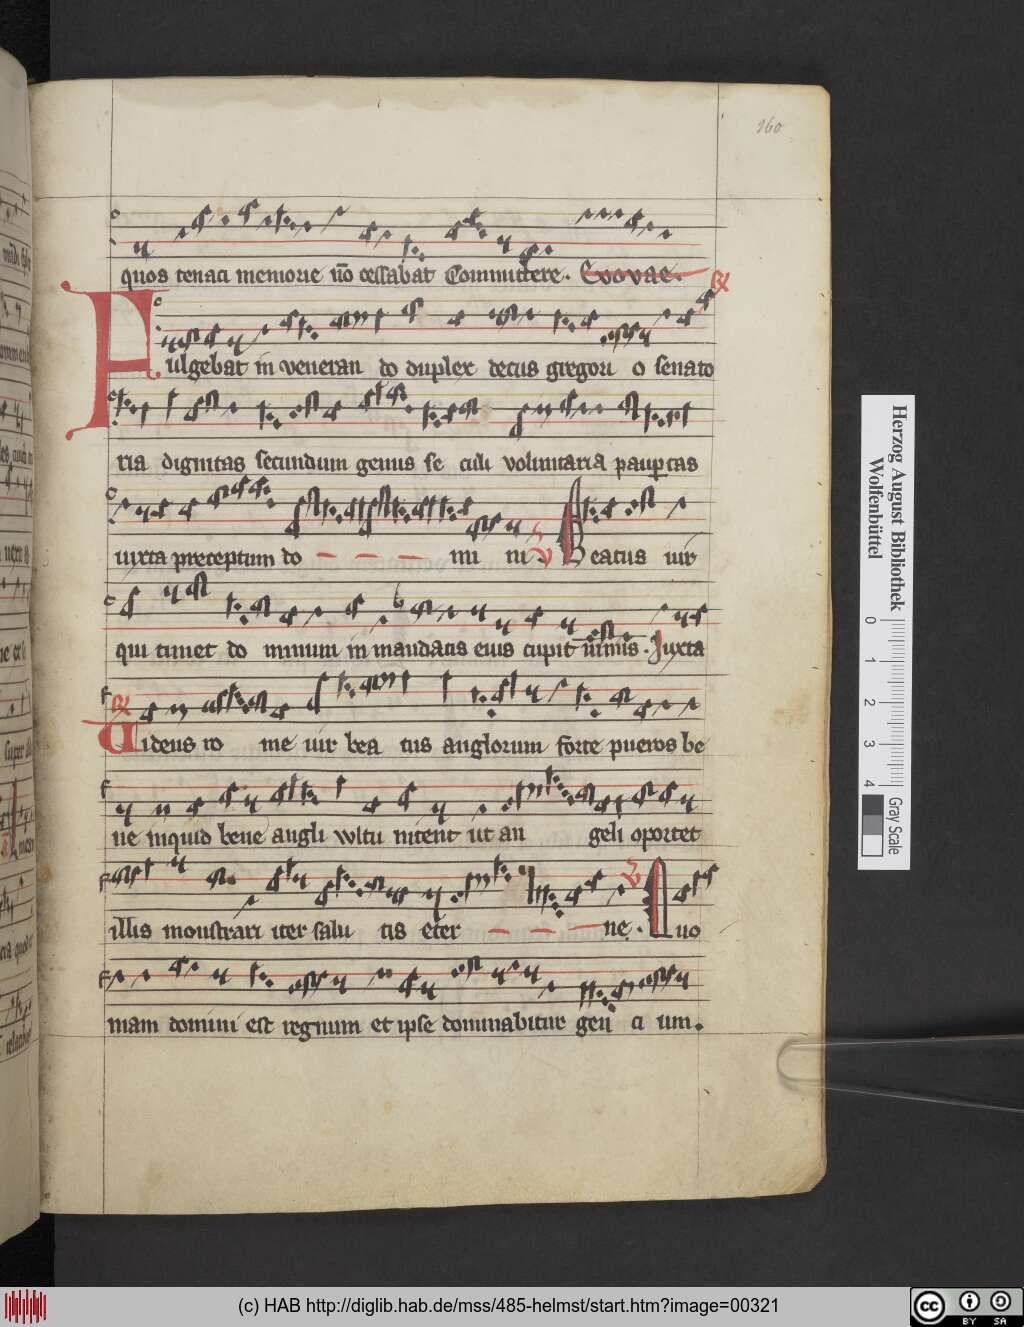 160
quos tenaci memorie nō cessabat Committere. Evovae.
R
Fulgebat in veneran do duplex decus gregorii o senato
ria dignitas secundum genus se culi voluntaria paupertas
iuxta preceptum do mi ni. V Beatus uir
qui timet do minum in mandatis eius cupit nimis. Iuxta
R
Uidens ro me uir bea tus anglorum forte pueros be
ne inquid bene angli vvltu nitent ut an geli oportet
illis monstrari iter salu tis eter ne. V Quo
niam domini est regnum et ipse dominabitur gen ci um.
Herzog August Bibliothek
Wolfenbüttel
0 1 2 3 4
Gray Scale
(c) HAB http://diglib.hab.de/mss/485-helmst/start.htm?image=00321
cc BY SA